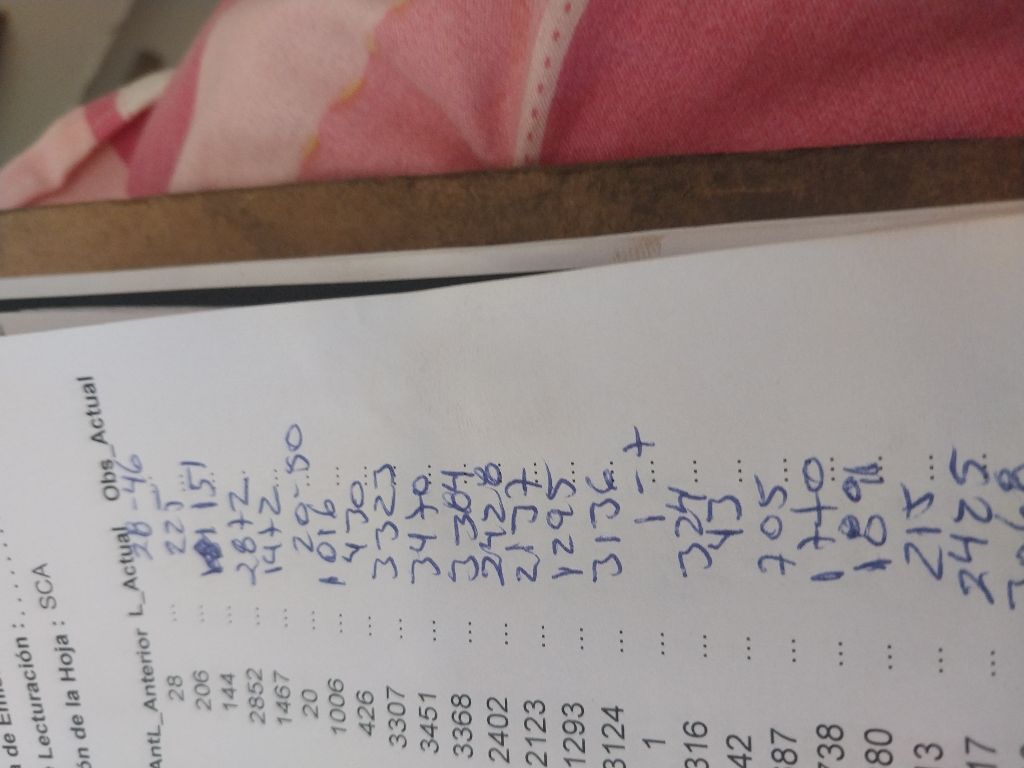 de Lecturación : . . . . . . .
ón de la Hoja : SCA
AntL_Anterior L_Actual Obs_Actual
28 ... 28-46
206 ... 225 ...
144 ... 151 ...
2852 ... 2872 ...
1467 ... 1472 ...
20 ... 29-50
1006 ... 1016 ...
426 ... 430 ...
3307 ... 3323 ...
3451 ... 3470 ...
3368 ... 3384 ...
2402 ... 2428 ...
2123 ... 2137 ...
1293 ... 1295 ...
3124 ... 3136 ...
1 ... 1-7
316 ... 324 ...
42 ... 43 ...
87 ... 705 ...
738 ... 1740 ...
80 ... 1891
3 ... 215 ...
17 ... 2425